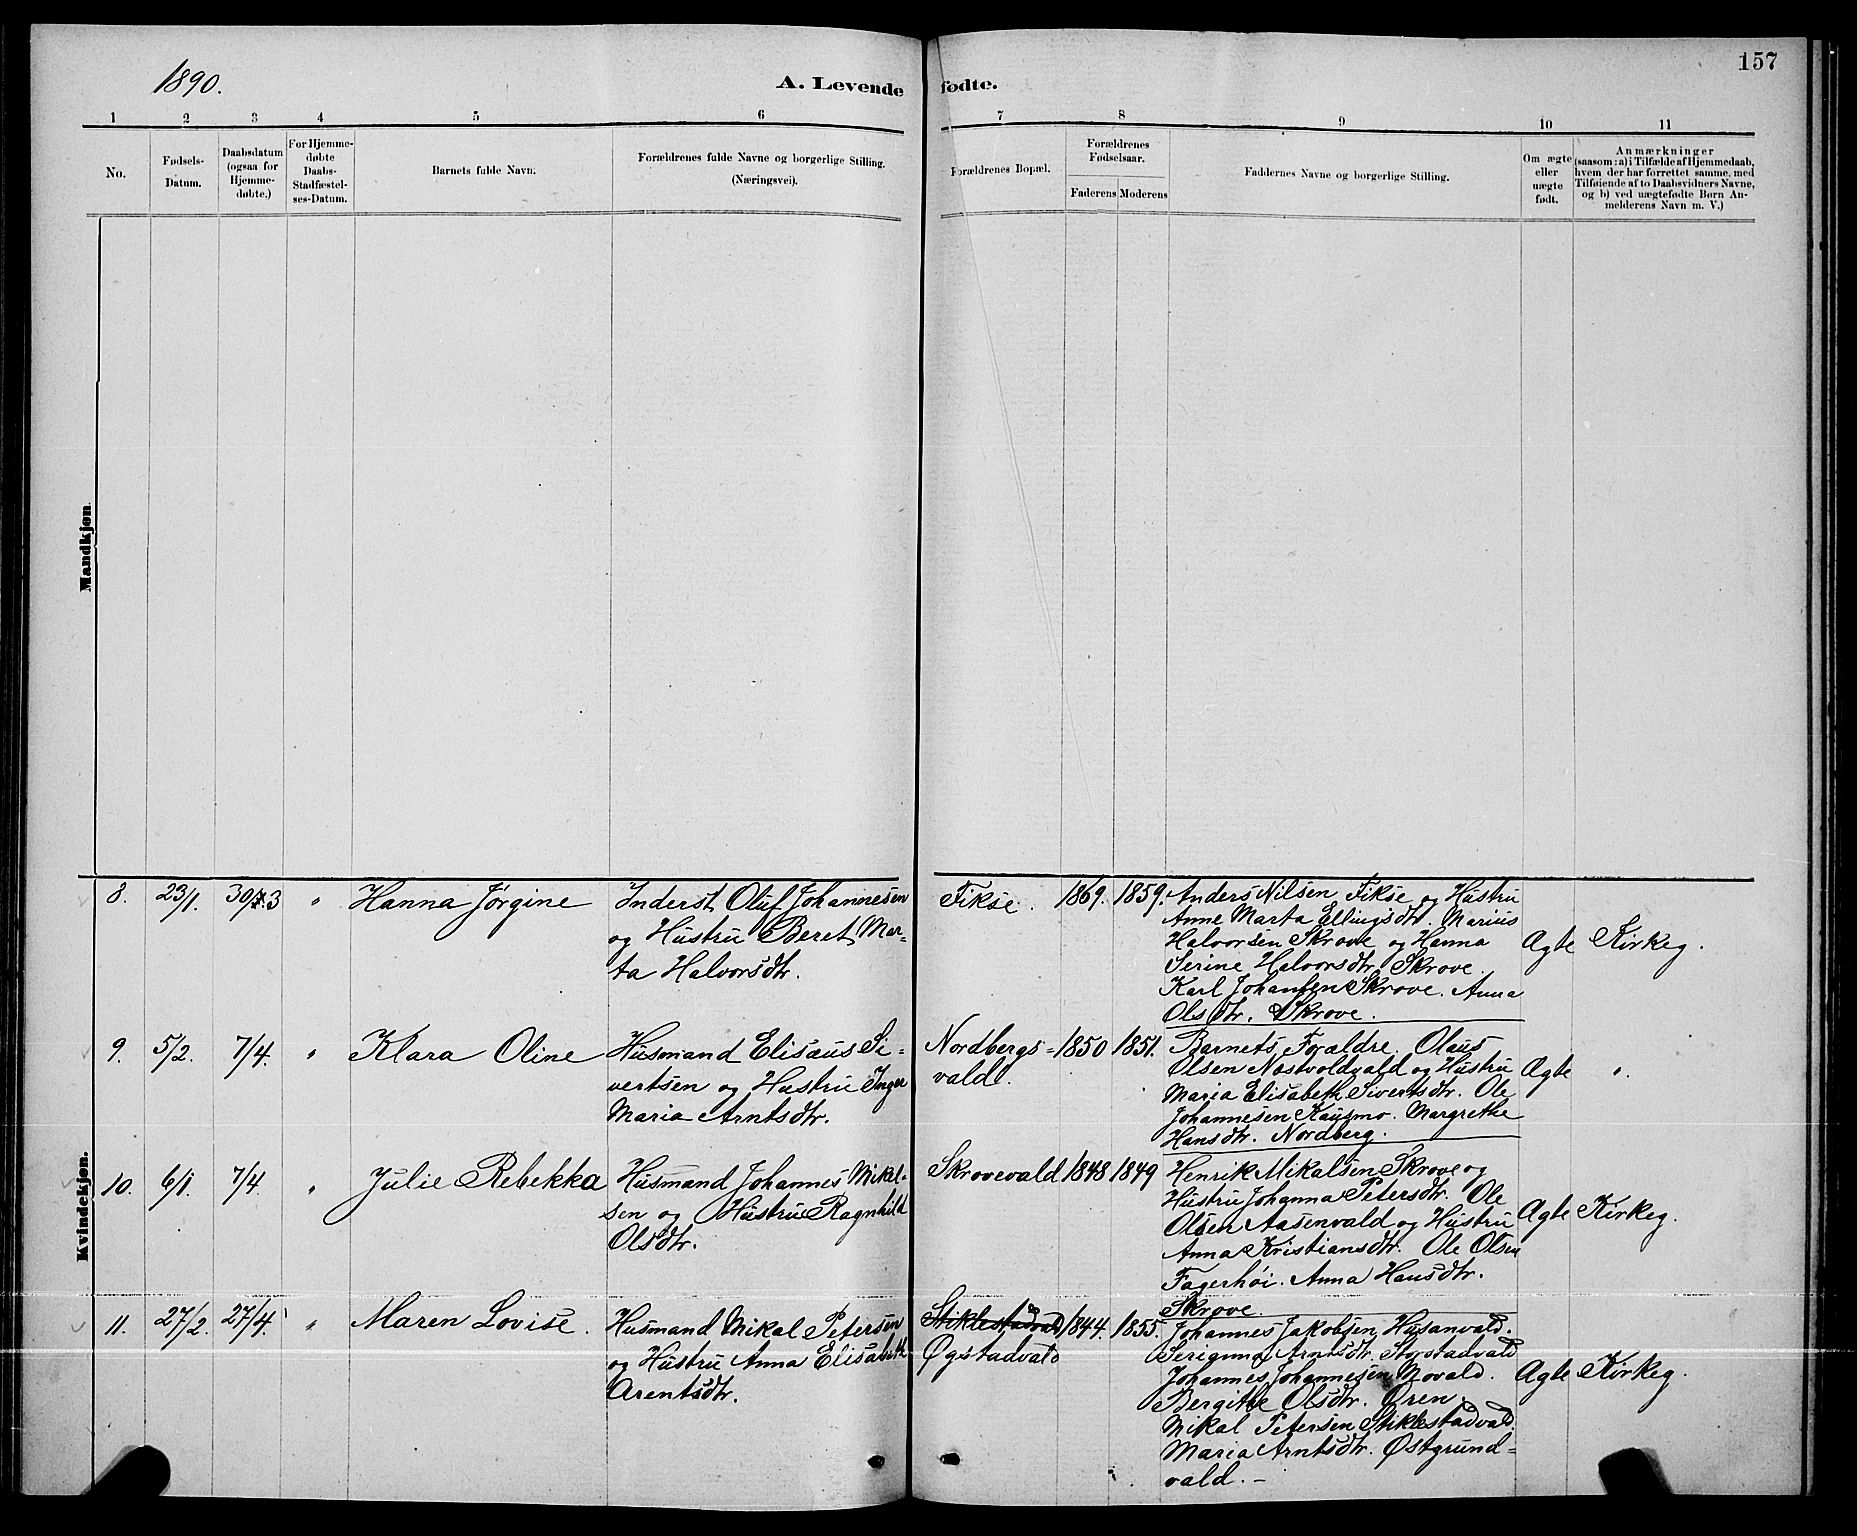 1890.
A. Levende fødte.
157
1 2 3 4 5 6 7 8 9 10 11
No.
Fødsels-
Datum.
Daabsdatum
(ogsaa for
Hjemme-
døbte.)
For Hjemme-
døbte
Daabs-
Stadfæstel-
ses-Datum.
Barnets fulde Navn.
Forældrenes fulde Navne og borgerlige Stilling.
(Næringsvei).
Forældrenes Bopæl.
Forældrenes
Fødselsaar.
Faderens
Moderens
Faddernes Navne og borgerlige Stilling.
Om ægte
eller
uægte
født.
Anmærkninger
(saasom: a) i Tilfælde af Hjemmedaab,
hvem der har forrettet samme, med
Tilføiende af to Daabsvidners Navne,
og b) ved uægtefødte Børn An-
melderens Navn m. V.)
Mandkjøn.
Kvindekjøn.
8. 23/1. 30/3 " Hanna Jørgine
Inderst Oluf Johannesen
og Hustru Beret Mar-
ta Halvorsdtr.
Fikse. 1869. 1859.
Anders Nilsen Fikse og Hustru
Anne Marta Ellingsdtr. Marius
Halvorsen Skrove og Hanna
Serine Halvorsdtr. Skrove.
Karl Johansen Skrove. Anna
Olsdtr. Skrove.
Ægte Kirkeg.
9. 5/2. 7/4. " Klara Oline
Husmand Elisæus Si-
vertsen og Hustru Inger
Maria Arntsdtr.
Nordbergs-
vald.
1850 1851.
Barnets Forældre. Olaus
Olsen Næstvoldvald og Hustru
Maria Elisabeth Sivertsdtr. Ole
Johannesen Kausmo. Margrethe
Hansdtr. Nordberg.
Ægte "
10. 6/1. 7/4. " Julie Rebekka
Husmand Johannes Mikal-
sen og Hustru Ragnhild
Olsdtr.
Skrovevald 1848 1849
Henrik Mikalsen Skrove og
Hustru Johanna Petersdtr. Ole
Olsen Aasenvald og Hustru
Anna Kristiansdtr. Ole Olsen
Fagerhøi. Anna Hansdtr.
Skrove.
Ægte Kirkeg.
11. 27/2. 27/4. " Maren Lovise.
Husmand Mikal Petersen
og Hustru Anna Elisabeth
Arentsdtr.
Stiklestadvald
Øgstadvald
1844. 1855.
Johannes Jakobsen Husanvald.
Serianna Arntsdtr. Storstadvald
Johannes Johannesen Movald.
Bergithe Olsdtr. Øren.
Mikal Petersen Stiklestadvald.
Maria Arntsdtr. Østgrund-
vald. –
Ægte Kirkeg.